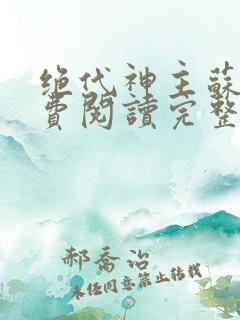 绝代神主蘇
費閱讀完整
郝喬治
未经同意禁止转载